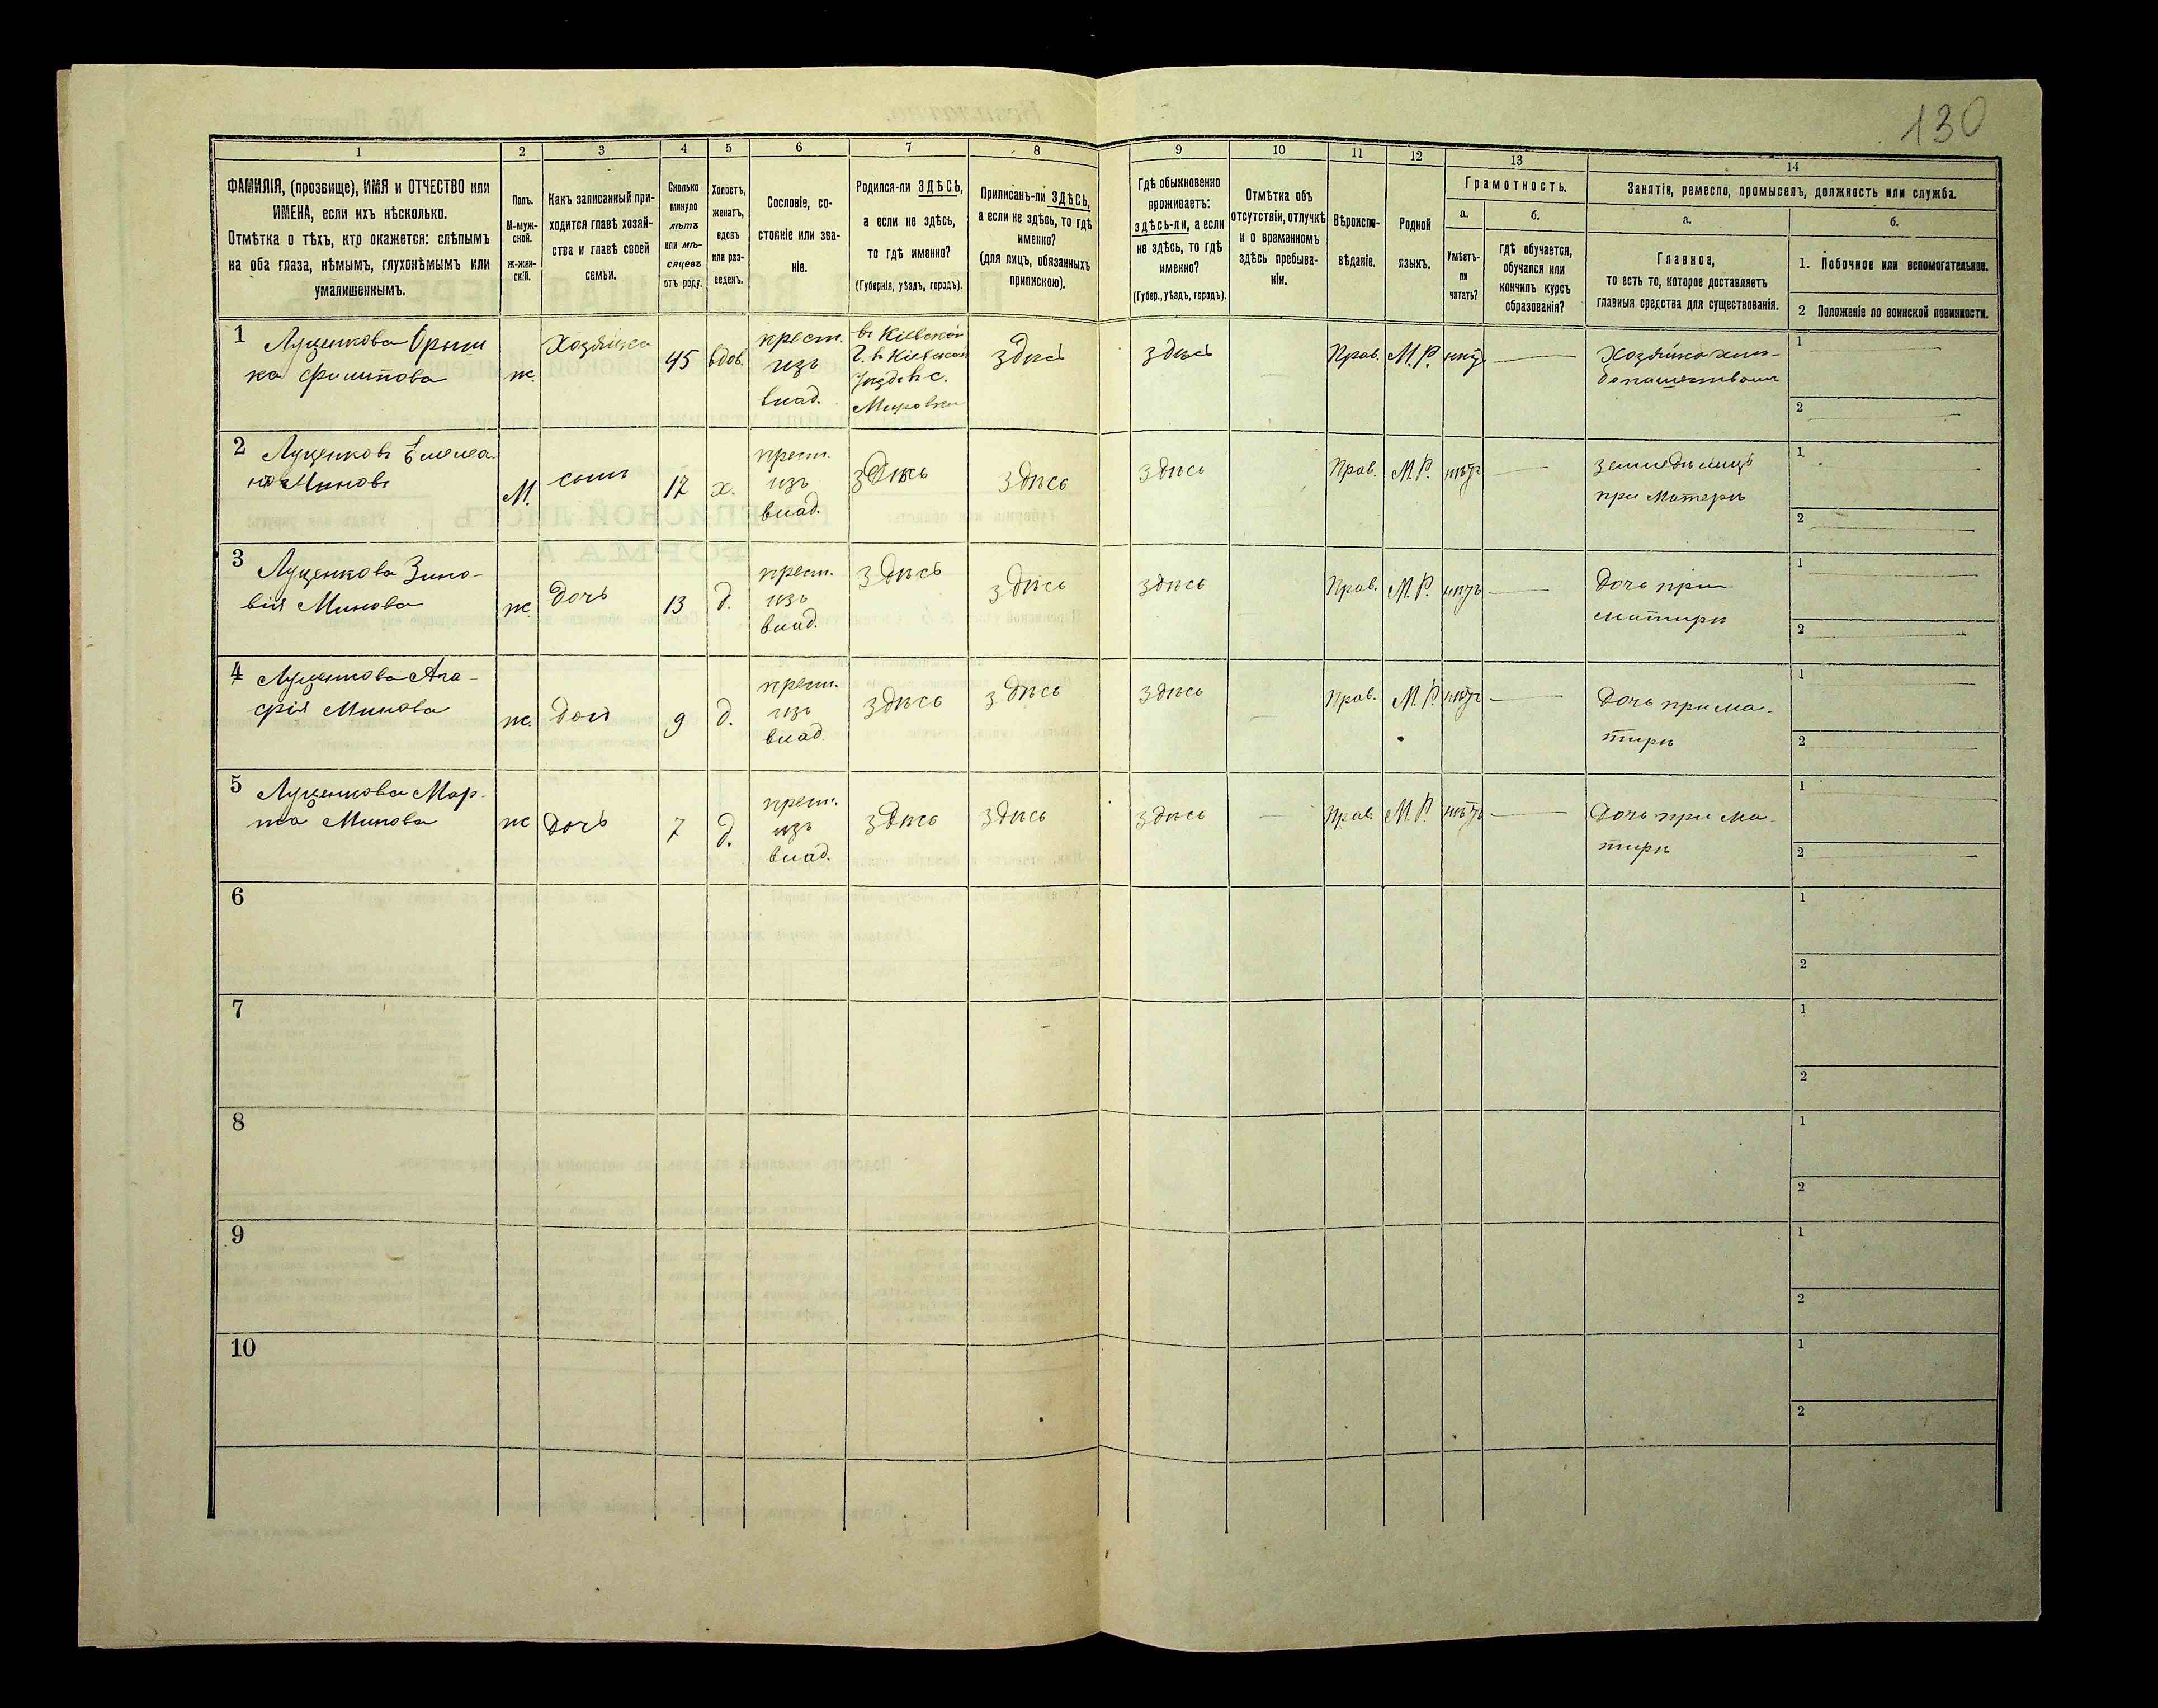 130
1
2
3
4
5
6
7
8
9
10
11
12
13
14
ФАМИЛІЯ, (прозвище), ИМЯ и ОТЧЕСТВО или
ИМЕНА, если ихъ нѣсколько.
Отмѣтка о тѣхъ, кто окажется: слѣпымъ
на оба глаза, нѣмымъ, глухонѣмымъ или
умалишеннымъ.
Полъ.
М-муж-
ской.
Ж-жен-
скій.
Какъ записанный при-
ходится главѣ хозяй-
ства и главѣ своей
семьи.
Сколько
минуло
лѣтъ
или мѣ-
сяцевъ
отъ роду.
Холостъ,
женатъ,
вдовъ
или раз-
веденъ.
Сословіе, со-
стояніе или зва-
ніе.
Родился-ли ЗДѢСЬ,
а если не здѣсь,
то гдѣ именно?
(Губернія, уѣздъ, городъ).
Приписанъ-ли ЗДѢСЬ,
а если не здѣсь, то гдѣ
именно?
(для лицъ, обязанныхъ
припискою).
Гдѣ обыкновенно
проживаетъ:
здѣсь-ли, а если
не здѣсь, то гдѣ
именно?
(Губер., уѣздъ, городъ).
Отмѣтка объ
отсутствіи, отлучкѣ
и о временномъ
здѣсь пребыва-
ніи.
Вѣроиспо-
вѣданіе.
Родной
языкъ.
Грамотность.
а.
Умѣетъ-
ли
читать?
б.
гдѣ обучается,
обучался или
кончилъ курсъ
образованія?
Занятіе, ремесло, промыселъ, должность или служба.
а.
Главное,
то есть то, которое доставляетъ
главныя средства для существованія.
б.
1. Побочное или вспомогательное.
2 Положеніе по воинской повинности.
1
Луценкова Орыш
ка Филипова
ж.
Хозяйка
45
вдов.
крест.
изъ
влад.
въ Кіевской
Г. в Кіевском
Уѣздѣ с.
Мировки
здѣсь
здѣсь
Прав.
М.Р.
нѣтъ
Хозяйка хлѣ-
бопашествомъ
1
2
2
Луценковъ Емелья
нъ Миновъ
М.
сынъ
17
х.
крест.
изъ
влад.
здѣсь
здѣсь
здѣсь
Прав.
М.Р.
нѣтъ
земледѣлецъ
при Матери
1
2
3
Луценкова Зино-
вія Минова
ж
дочь
13
д.
крест.
изъ
влад.
здѣсь
здѣсь
здѣсь
Прав.
М.Р.
нѣтъ
Дочь при
матирѣ
1
2
4
Луценкова Ага-
фія Минова
ж.
доч
9
д.
крест.
изъ
влад
здѣсь
здѣсь
здѣсь
Прав.
М.Р.
нѣтъ
Дочь при ма-
тирѣ
1
2
5
Луценкова Мар-
та Минова
ж
дочь
7
д.
крест.
изъ
влад.
здѣсь
здѣсь
здѣсь
Прав.
М.Р.
нѣтъ
Дочь при ма-
тирѣ
1
2
6
1
2
7
1
2
8
1
2
9
1
2
10
1
2